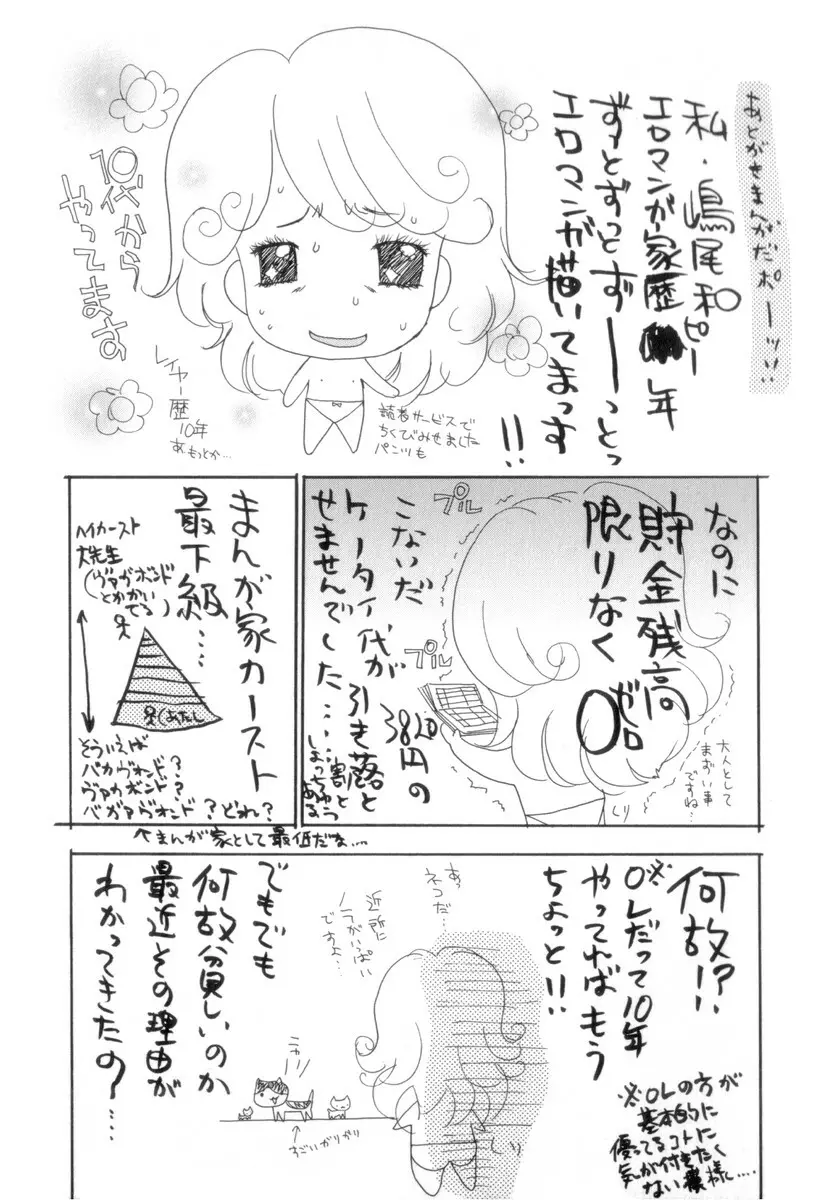 あとがきまんがだポーッ!!
私・嶋尾和ピー
エロマンガ家歴 年
ずっとずっとずーっとっ
エロマンガ描いてまっす!!
10代から
やってます
レイヤー歴
10年
読者サービスで
ちくびみせました
パンツも
なのに
貯金残高
限りなく
0
ゼロ
こないだ
ケータイ代が
3820円の
引き落と
せませんでした……
割と
しょっちゅう
ある
プル
プル
大人として
まずい事
ですね…
まんが家カースト
最下級……
ハイカースト
大先生
(ヴァガボンド
とかかい
てる)
(あたし
そういえば
バカヴォンド?
ヴァカボンド?
バガァヴォンド?どれ?
↑まんが家として最低だな…
何故!?
※OLだって10年
やってればもう
ちょっと!!
※OLの方が
基本的に
優ってるコトに
気が付きたく
ない模様……
あっ
ネコだ…
近所に
ノラがいっぱい
ですよ…
ニャー
↑すごいガリガリ
でもでも
何故貧しいのか
最近その理由が
わかってきたの?……